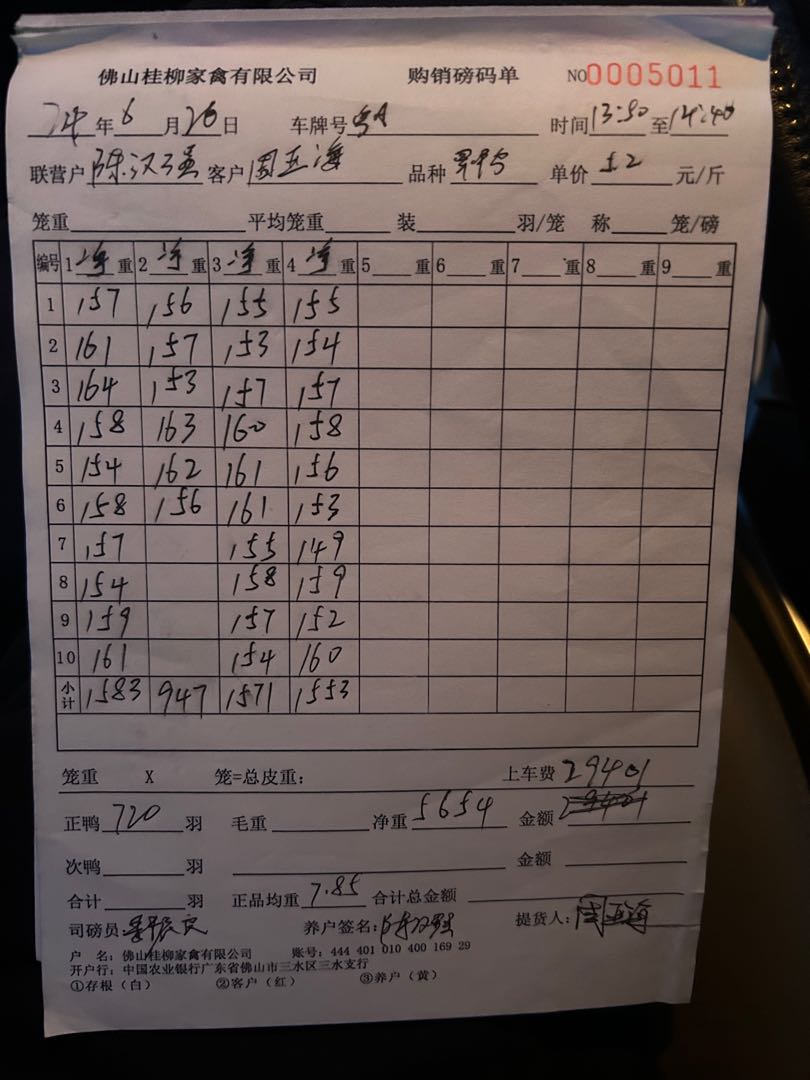 佛山桂柳家禽有限公司 购销磅码单 NO0005011
24年6月26日 车牌号粤A 时间13:50至14:40
联营户陈汉强 客户周亚海 品种 单价5.2元/斤
笼重 平均笼重 装 羽/笼 称 笼/磅
编号 1净重 2净重 3净重 4净重 5重 6重 7重 8重 9重
1 157 156 155 155
2 161 157 153 154
3 164 153 157 157
4 158 163 160 158
5 154 162 161 156
6 158 156 161 153
7 157 155 149
8 154 158 159
9 159 157 152
10 161 154 160
小计 1583 947 1571 1553
笼重 X 笼=总皮重: 上车费29401
正鸭720羽 毛重 净重5654 金额
次鸭 羽 金额
合计 羽 正品均重7.85 合计总金额
司磅员: 养户签名:陈汉强 提货人:周亚海
户 名: 佛山桂柳家禽有限公司 账号: 444 401 010 400 169 29
开户行: 中国农业银行广东省佛山市三水区三水支行
①存根(白) ②客户(红) ③养户(黄)